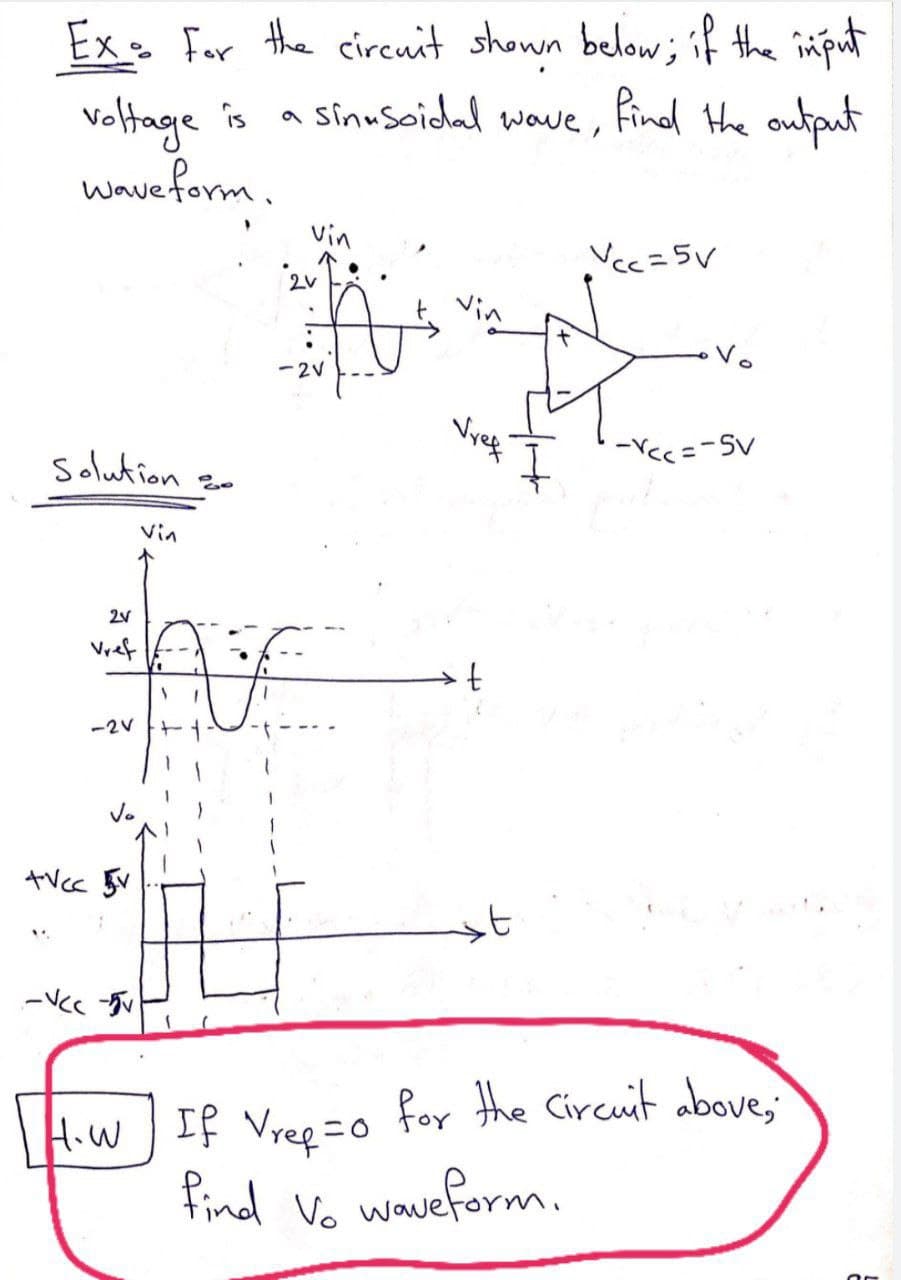 Ex: For the circuit shown below; if the input
voltage is a sinusoidal wave, find the output
waveform.
Vin
2V
t
-2V
Vin
Vcc=5V
+
-
Vo
Vref
-Vcc=-5V
Solution:
Vin
2V
Vref
t
-2V
Vo
+Vcc 5V
t
-Vcc -5V
H.W If Vref=0 for the circuit above;
find Vo waveform.